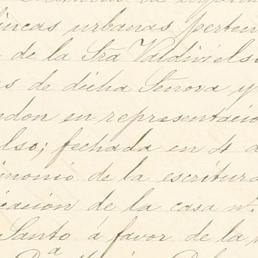 fincas urbanas, perten
de la Sra Valdiviels
s de dicha Señora y
ndon en representacio
lso; fechada en 4 d
imonio de la escritura
icacion de la casa nº
Santo á favor de la